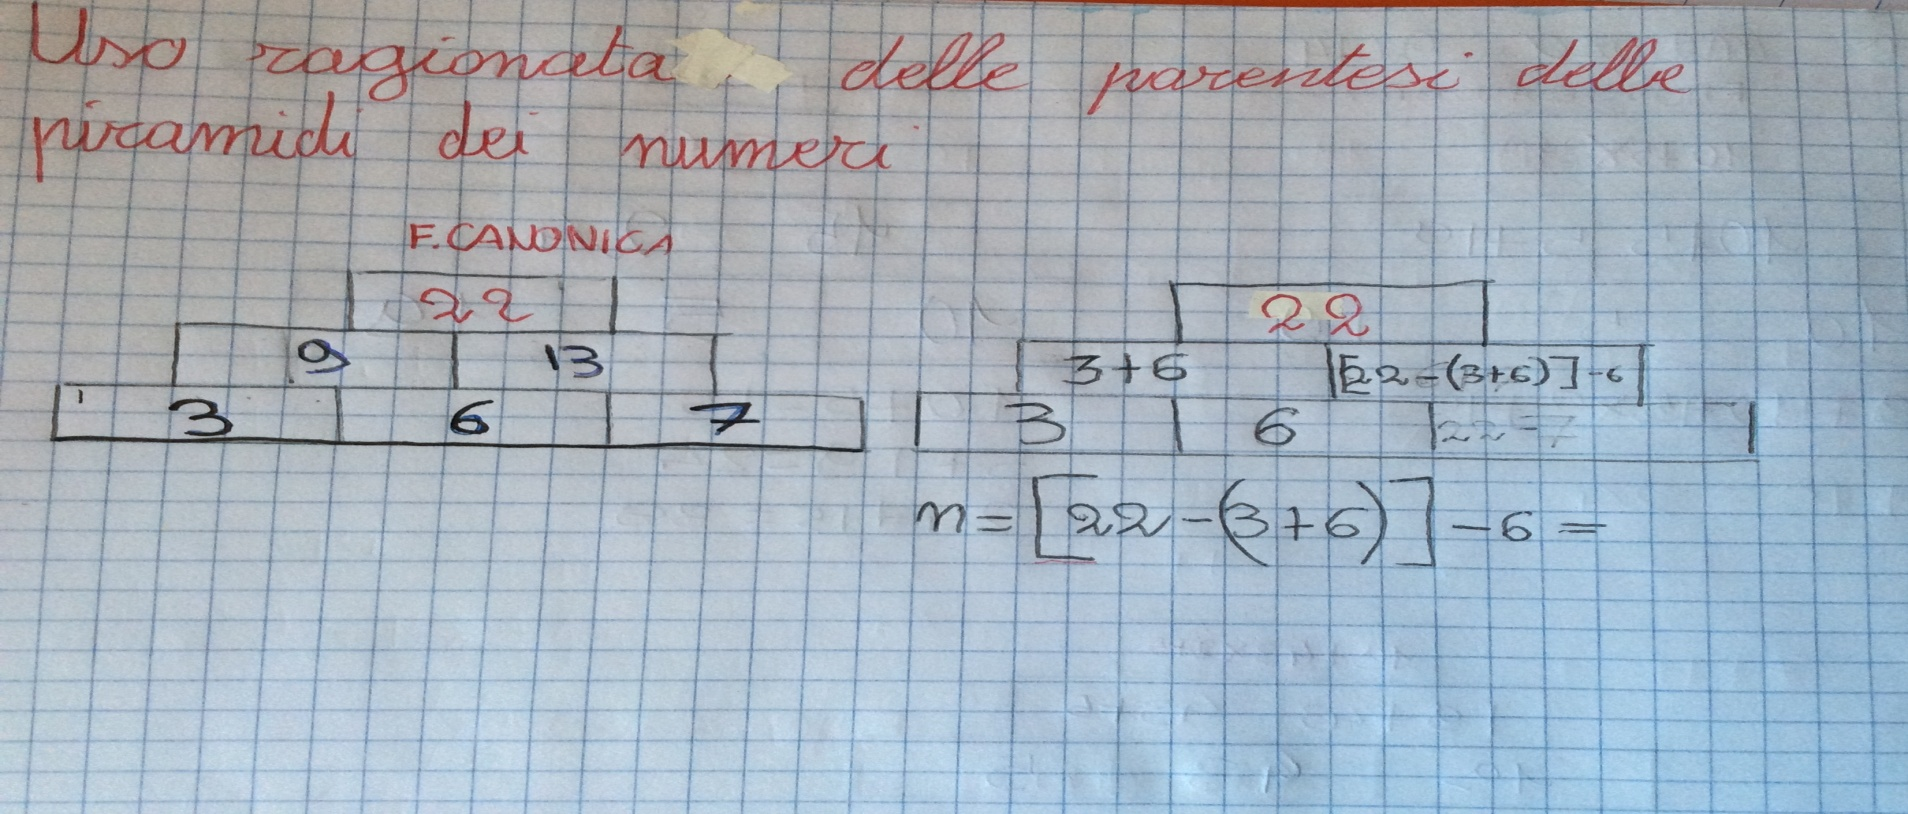 Uso ragionata delle parentesi delle
piramidi dei numeri
F. CANONICA
22
9 13
3 6 7
22
3+6 [22-(3+6)]-6
3 6 22-7
n=[22-(3+6)]-6=